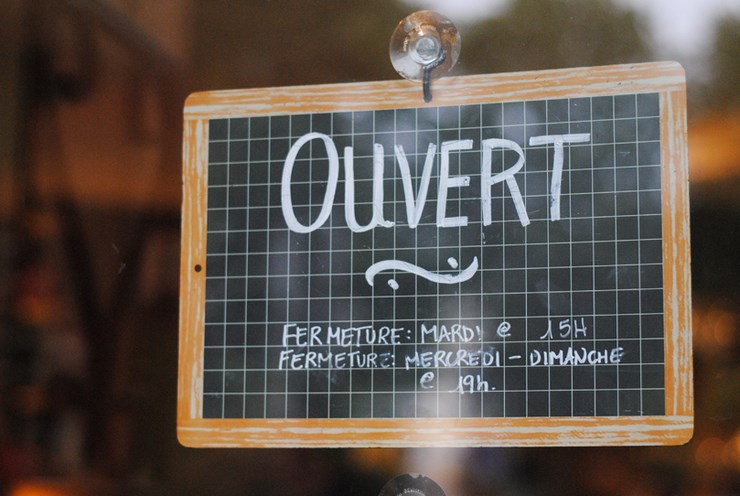 OUVERT
FERMETURE: MARDI @ 15H
FERMETURE: MERCREDI - DIMANCHE
@ 19h.